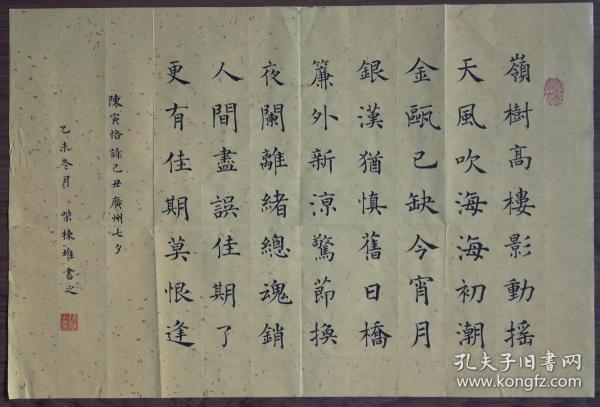 嶺樹高樓影動搖
天風吹海海初潮
金甌已缺今宵月
銀漢猶慎舊日橋
簾外新涼驚節換
夜闌離緒總魂銷
人間盡誤佳期了
更有佳期莫恨逢
陳寅恪詠己丑廣州七夕
乙未冬月 柴棟雄書之
孔夫子旧書网
www.kongfz.com